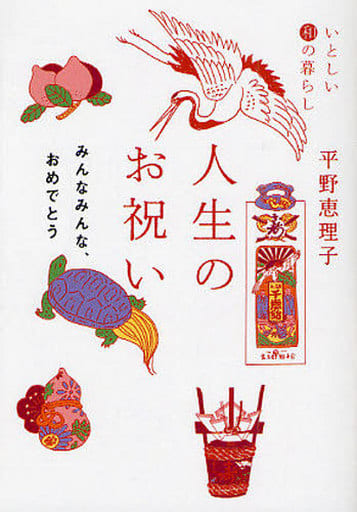 いとしい
和の暮らし
平野恵理子
人生の
お祝い
みんなみんな、
おめでとう
寿
千歳飴